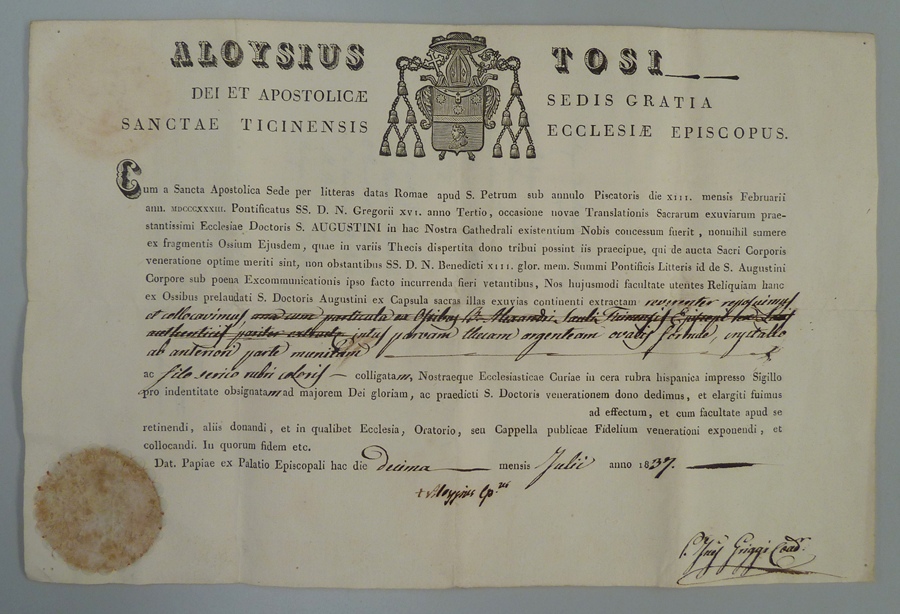 ALOYSIUS TOSI
DEI ET APOSTOLICÆ SEDIS GRATIA
SANCTAE TICINENSIS ECCLESIÆ EPISCOPUS.
Cum a Sancta Apostolica Sede per litteras datas Romae apud S. Petrum sub annulo Piscatoris die XIII. mensis Februarii
ann. MDCCCXXXIII. Pontificatus SS. D. N. Gregorii XVI. anno Tertio, occasione novae Translationis Sacrarum exuviarum prae-
stantissimi Ecclesiae Doctoris S. AUGUSTINI in hac Nostra Cathedrali existentium Nobis concessum fuerit, nonnihil sumere
ex fragmentis Ossium Ejusdem, quae in variis Thecis dispertita dono tribui possint iis praecipue, qui de aucta Sacri Corporis
veneratione optime meriti sint, non obstantibus SS. D. N. Benedicti XIII. glor. mem. Summi Pontificis Litteris id de S. Augustini
Corpore sub poena Excommunicationis ipso facto incurrenda fieri vetantibus, Nos hujusmodi facultate utentes Reliquiam hanc
ex Ossibus prelaudati S. Doctoris Augustini ex Capsula sacras illas exuvias continenti extractam reverenter reposuimus
et collocavimus una cum particula ex Ossibus S. Alexandri Sauli
authenticis pariter extracta intus parvam thecam argenteam ovalis formae, crystallo
ab anteriori parte munitam
ac filo serico rubri coloris colligatam, Nostraeque Ecclesiasticae Curiae in cera rubra hispanica impresso Sigillo
pro indentitate obsignatam ad majorem Dei gloriam, ac praedicti S. Doctoris venerationem dono dedimus, et elargiti fuimus
ad effectum, et cum facultate apud se
retinendi, aliis donandi, et in qualibet Ecclesia, Oratorio, seu Cappella publicae Fidelium venerationi exponendi, et
collocandi. In quorum fidem etc.
Dat. Papiae ex Palatio Episcopali hac die decima mensis Julii anno 1837.
+ Aloysius Ep.us
Griggi Coad.r